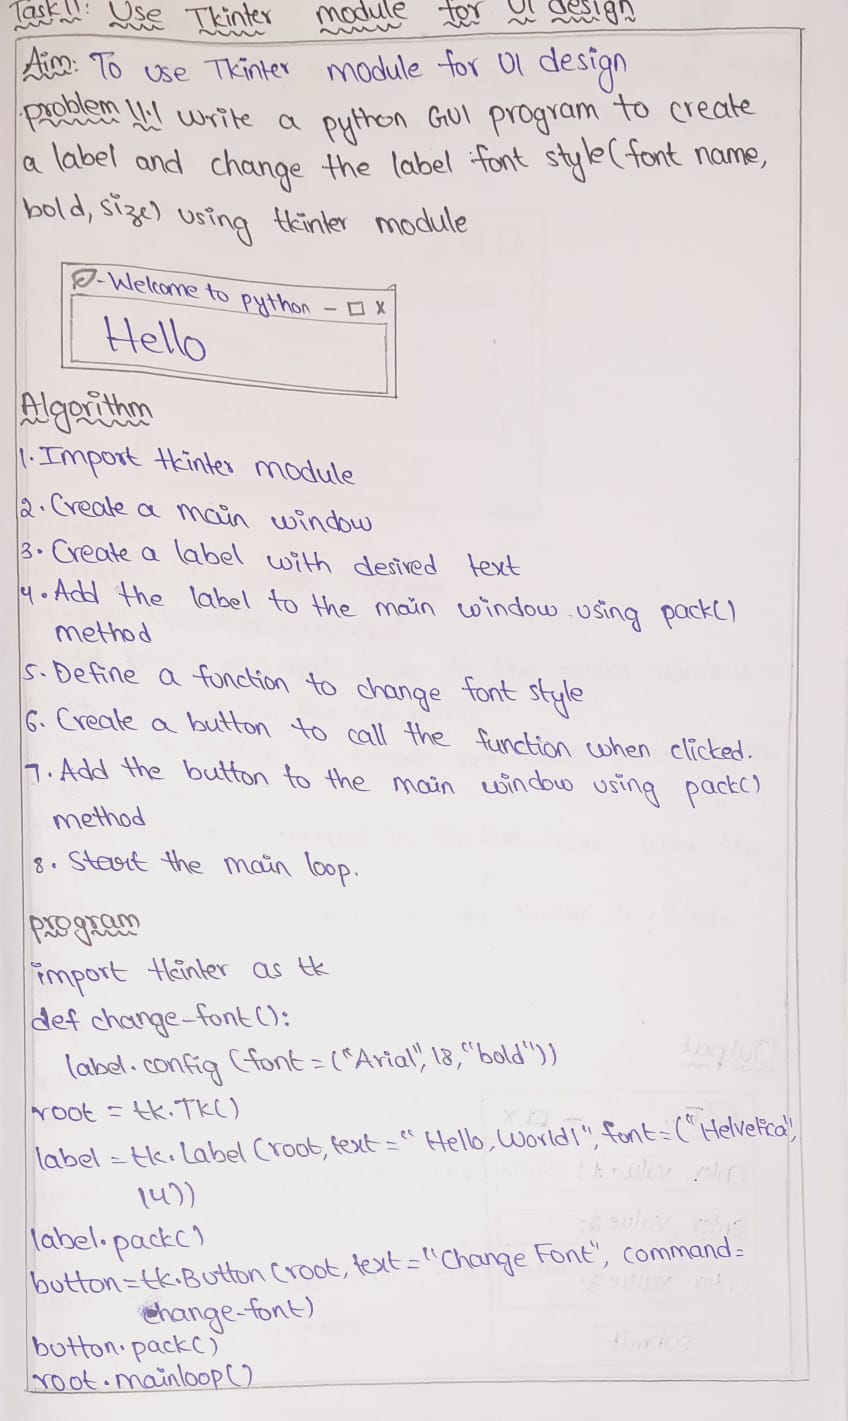 Task 11: Use Tkinter module for UI design
Aim: To use Tkinter module for UI design
problem 11.1 write a python GUI program to create
a label and change the label font style (font name,
bold, size) using tkinter module
Welcome to python - □ x
Hello
Algorithm
1. Import tkinter module
2. Create a main window
3. Create a label with desired text
4. Add the label to the main window using pack()
method
5. Define a function to change font style
6. Create a button to call the function when clicked.
7. Add the button to the main window using pack()
method
8. Start the main loop.
program
import tkinter as tk
def change-font():
label.config (font = ("Arial", 18, "bold"))
root = tk.TK()
label = tk.Label (root, text = "Hello, World!", font = ("Helvetica",
14))
label.pack()
button = tk.Button (root, text = "Change Font", command =
change-font)
button.pack()
root.mainloop()